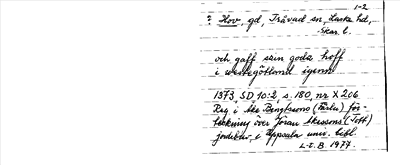 1-2
? Hov, gd, Trävad sn, Laske hd,
Skar. l.
och gaff szin godz hoff
i westegötland igenn
1373, SD 10:2 s. 180, nr X 206
Reg i Åke Bengtssons (Färla) för-
teckning över Jöran Åkessons (Tott)
jordebr. i Uppsala univ. bibl.
L-E. B. 1977.